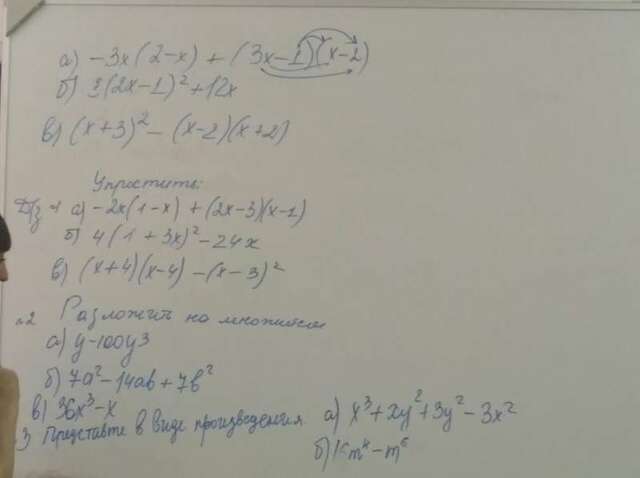 а) -3x(2-x) + (3x-1)(x-2)
б) 3(2x-1)²+12x
в) (x+3)² - (x-2)(x+2)
Упростить:
Д/з №1 а) -2x(1-x) + (2x-3)(x-1)
б) 4(1+3x)² - 24x
в) (x+4)(x-4) - (x-3)²
№2 Разложить на множители
а) y-100y3
б) 7a² - 14ab + 7b²
в) 36x³ - x
3 Представте в виде произведения а) x³+2y²+3y²-3x²